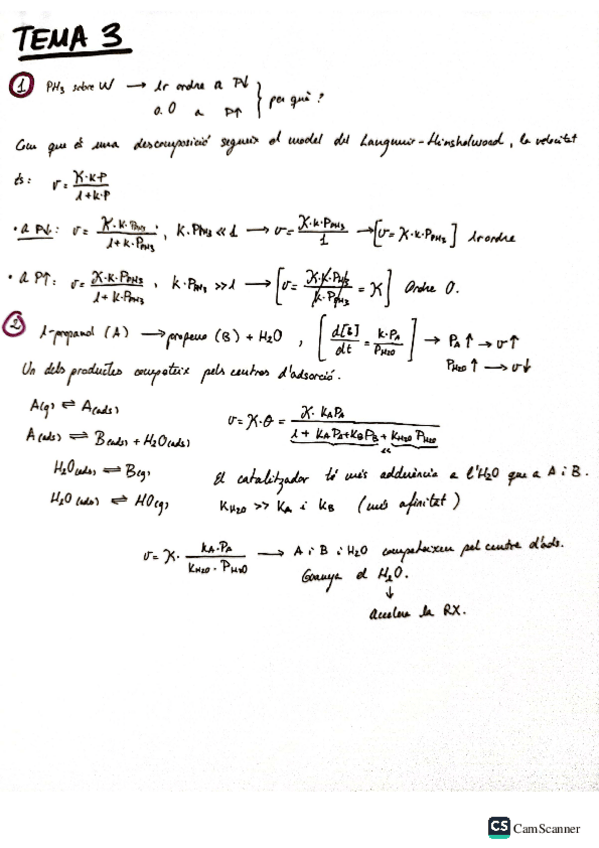 TEMA 3
① PH3 sobre W → 1r ordre a P↓ } per què?
o. 0 a P↑
Com que és una descomposició segueix el model del Langmuir-Hinshelwood, la velocitat
és: v = K·k·P / 1+k·P
• a P↓: v = K·k·PPH3 / 1+k·PPH3 , k·PPH3 << 1 → v = K·k·PPH3 / 1 → [v = K·k·PPH3] 1r ordre
• a P↑: v = K·k·PPH3 / 1+k·PPH3 , k·PPH3 >> 1 → [v = K·k·PPH3 / k·PPH3 = K] Ordre 0.
② 1-propanol (A) → propeno (B) + H2O , [d[B]/dt = k·PA / PH2O] → PA↑ → v↑
PH2O↑ → v↓
Un dels productes competeix pels centres d'adsorció.
A(g) ⇌ A(ads)
v = K·θ = K·kAPA / 1 + kAPA+kBPB + kH2O PH2O
<<
A(ads) ⇌ B(ads) + H2O(ads)
H2O(ads) ⇌ B(g)
El catalitzador té més adherència a l'H2O que a A i B.
H2O(ads) ⇌ HO(g)
kH2O >> kA i kB (més afinitat)
v = K· kA·PA / kH2O·PH2O → A i B i H2O competeixen pel centre d'ads.
Guanya el H2O.
↓
Accelera la RX.
CS CamScanner